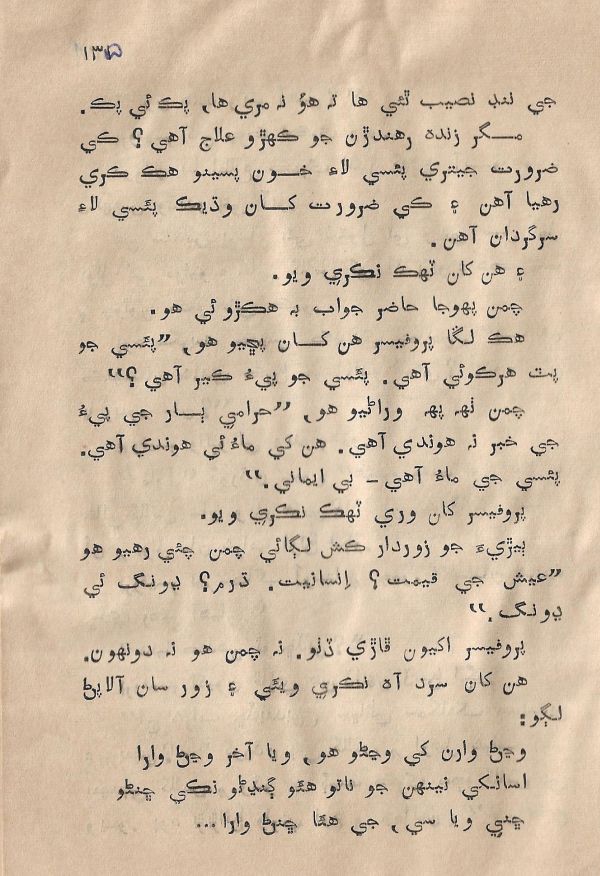 ۱۳۵
جي ننڊ نصيب ٿئي ها ته هوُ نه مري ها, پڪ ئي پڪ.
مــگر زنده رهندڙن جو ڪهڙو علاج آهي؟ ڪي
ضرورت جيتري پئسي لاءِ خــون پسينو هڪ ڪري
رهيا آهن ۽ ڪي ضرورت کــان وڌيڪ پئسي لاءِ
سرگردان آهن.
۽ هن کان ٽهڪ نڪري ويو.
چمن پهوجا حاضر جواب به هڪڙو ئي هو.
هڪ لڱا پروفيسر هن کــان پڇيو هو, ”پئسي جو
پٽ هرڪوئي آهي. پئسي جو پيءُ ڪير آهي؟“
چمن ٺهه پهه وراڻيو هو, ”حرامي ٻــار جي پيءُ
جي خبر نه هوندي آهي. هن کي ماءُ ئي هوندي آهي.
پئسي جي ماءُ آهي – بي ايماني.“
پروفيسر کان وري ٽهڪ نڪري ويو.
ٻيڙيءَ جو زوردار ڪش لڳائي چمن چئي رهيو هو
”عيش جي قيمت؟ اِنسانيت. ڌرم؟ ڍونگ ئي
ڍونگ.“
پروفيسر اکيون ڦاڙي ڏٺو. نه چمن هو نه دونهون.
هن کان سرد آه نڪري ويئي ۽ زور سان آلاپڻ
لڳو:
وڃڻ وارن کي وڃڻو هو, ويا آخر وڃڻ وارا
اسانکي نينهن جو ناتو هئو ڳنڍڻو نڪي ڇنڻو
ڇني ويا سي, جي هئا ڇنڻ وارا...